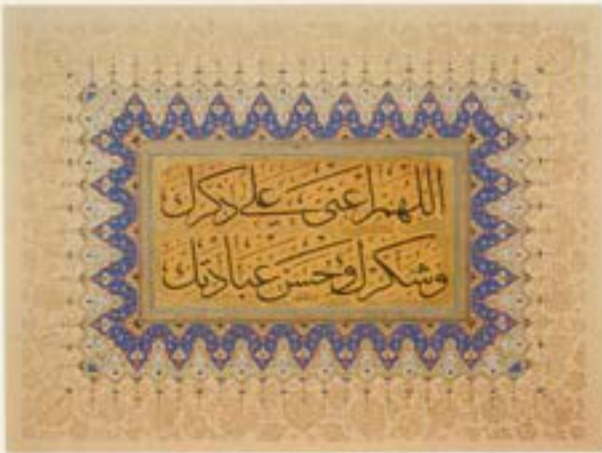 اللهم اعني على ذكرك
وشكرك وحسن عبادتك